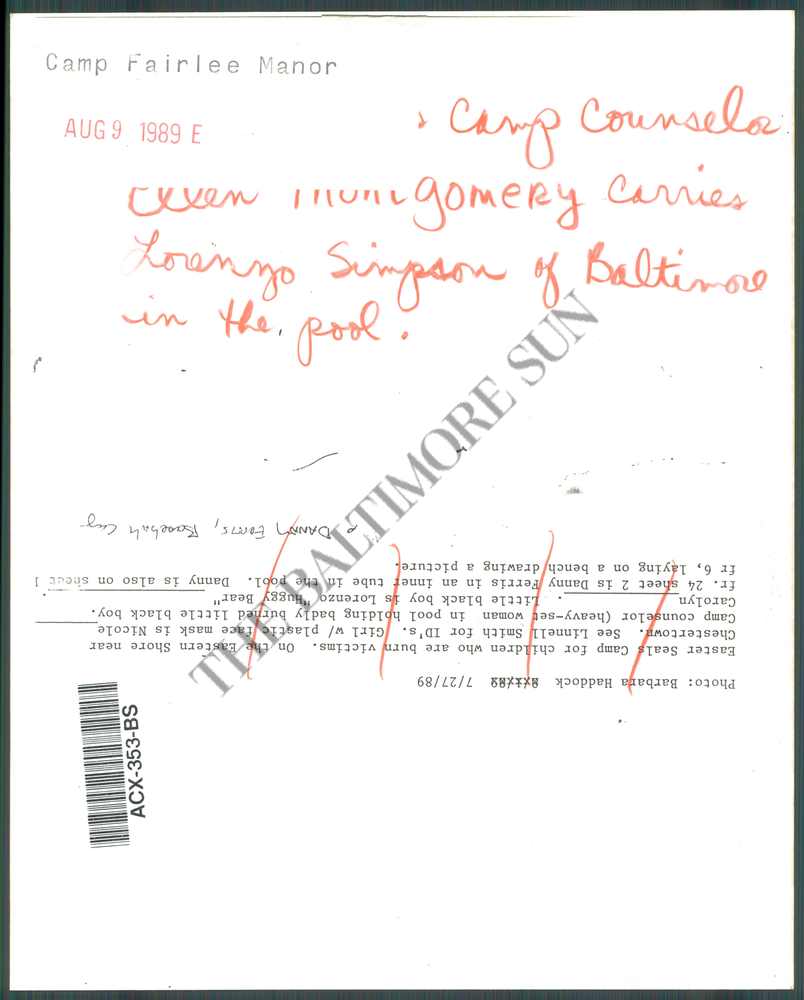 Camp Fairlee Manor
AUG 9 1989 E
Camp Counselor
Montgomery Carries
Lorenzo Simpson of Baltimore
in the pool.
THE BALTIMORE SUN
Photo: Barbara Haddock 7/27/89
Easter Seals Camp for children who are burn victims. On the Eastern Shore near
Chestertown. See Linnell Smith for ID's. Girl w/ plastic face mask is Nicole
Camp counselor (heavy-set woman in pool holding badly burned little black boy.
Carolyn . Little black boy is Lorenzo "Huggy Bear" .
fr. 24 sheet 2 is Danny Ferris in an inner tube in the pool. Danny is also on sheet 1
fr 6, laying on a bench drawing a picture.
DANNY Baseball Cap
ACX-353-BS